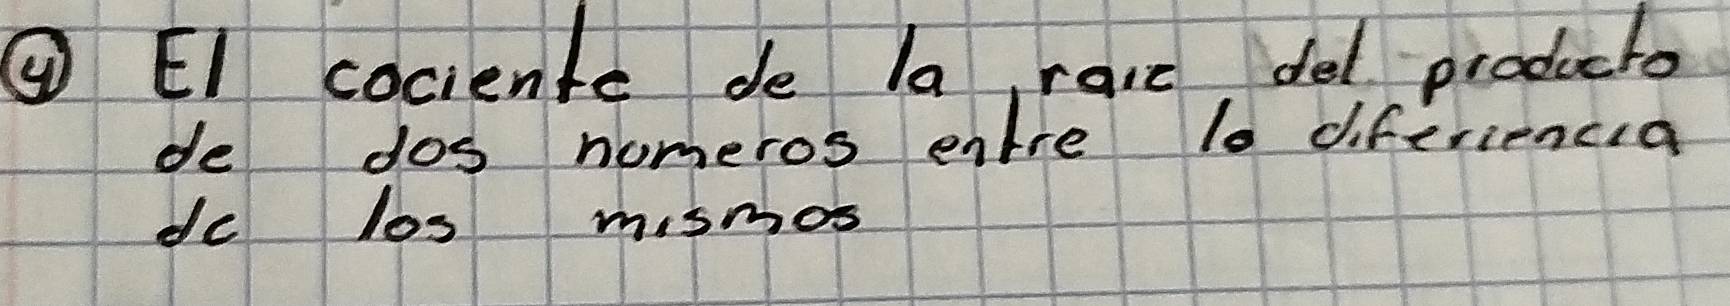 ④ El cociente de la raiz del producto
de dos numeros entre la diferiencia
de los mismos